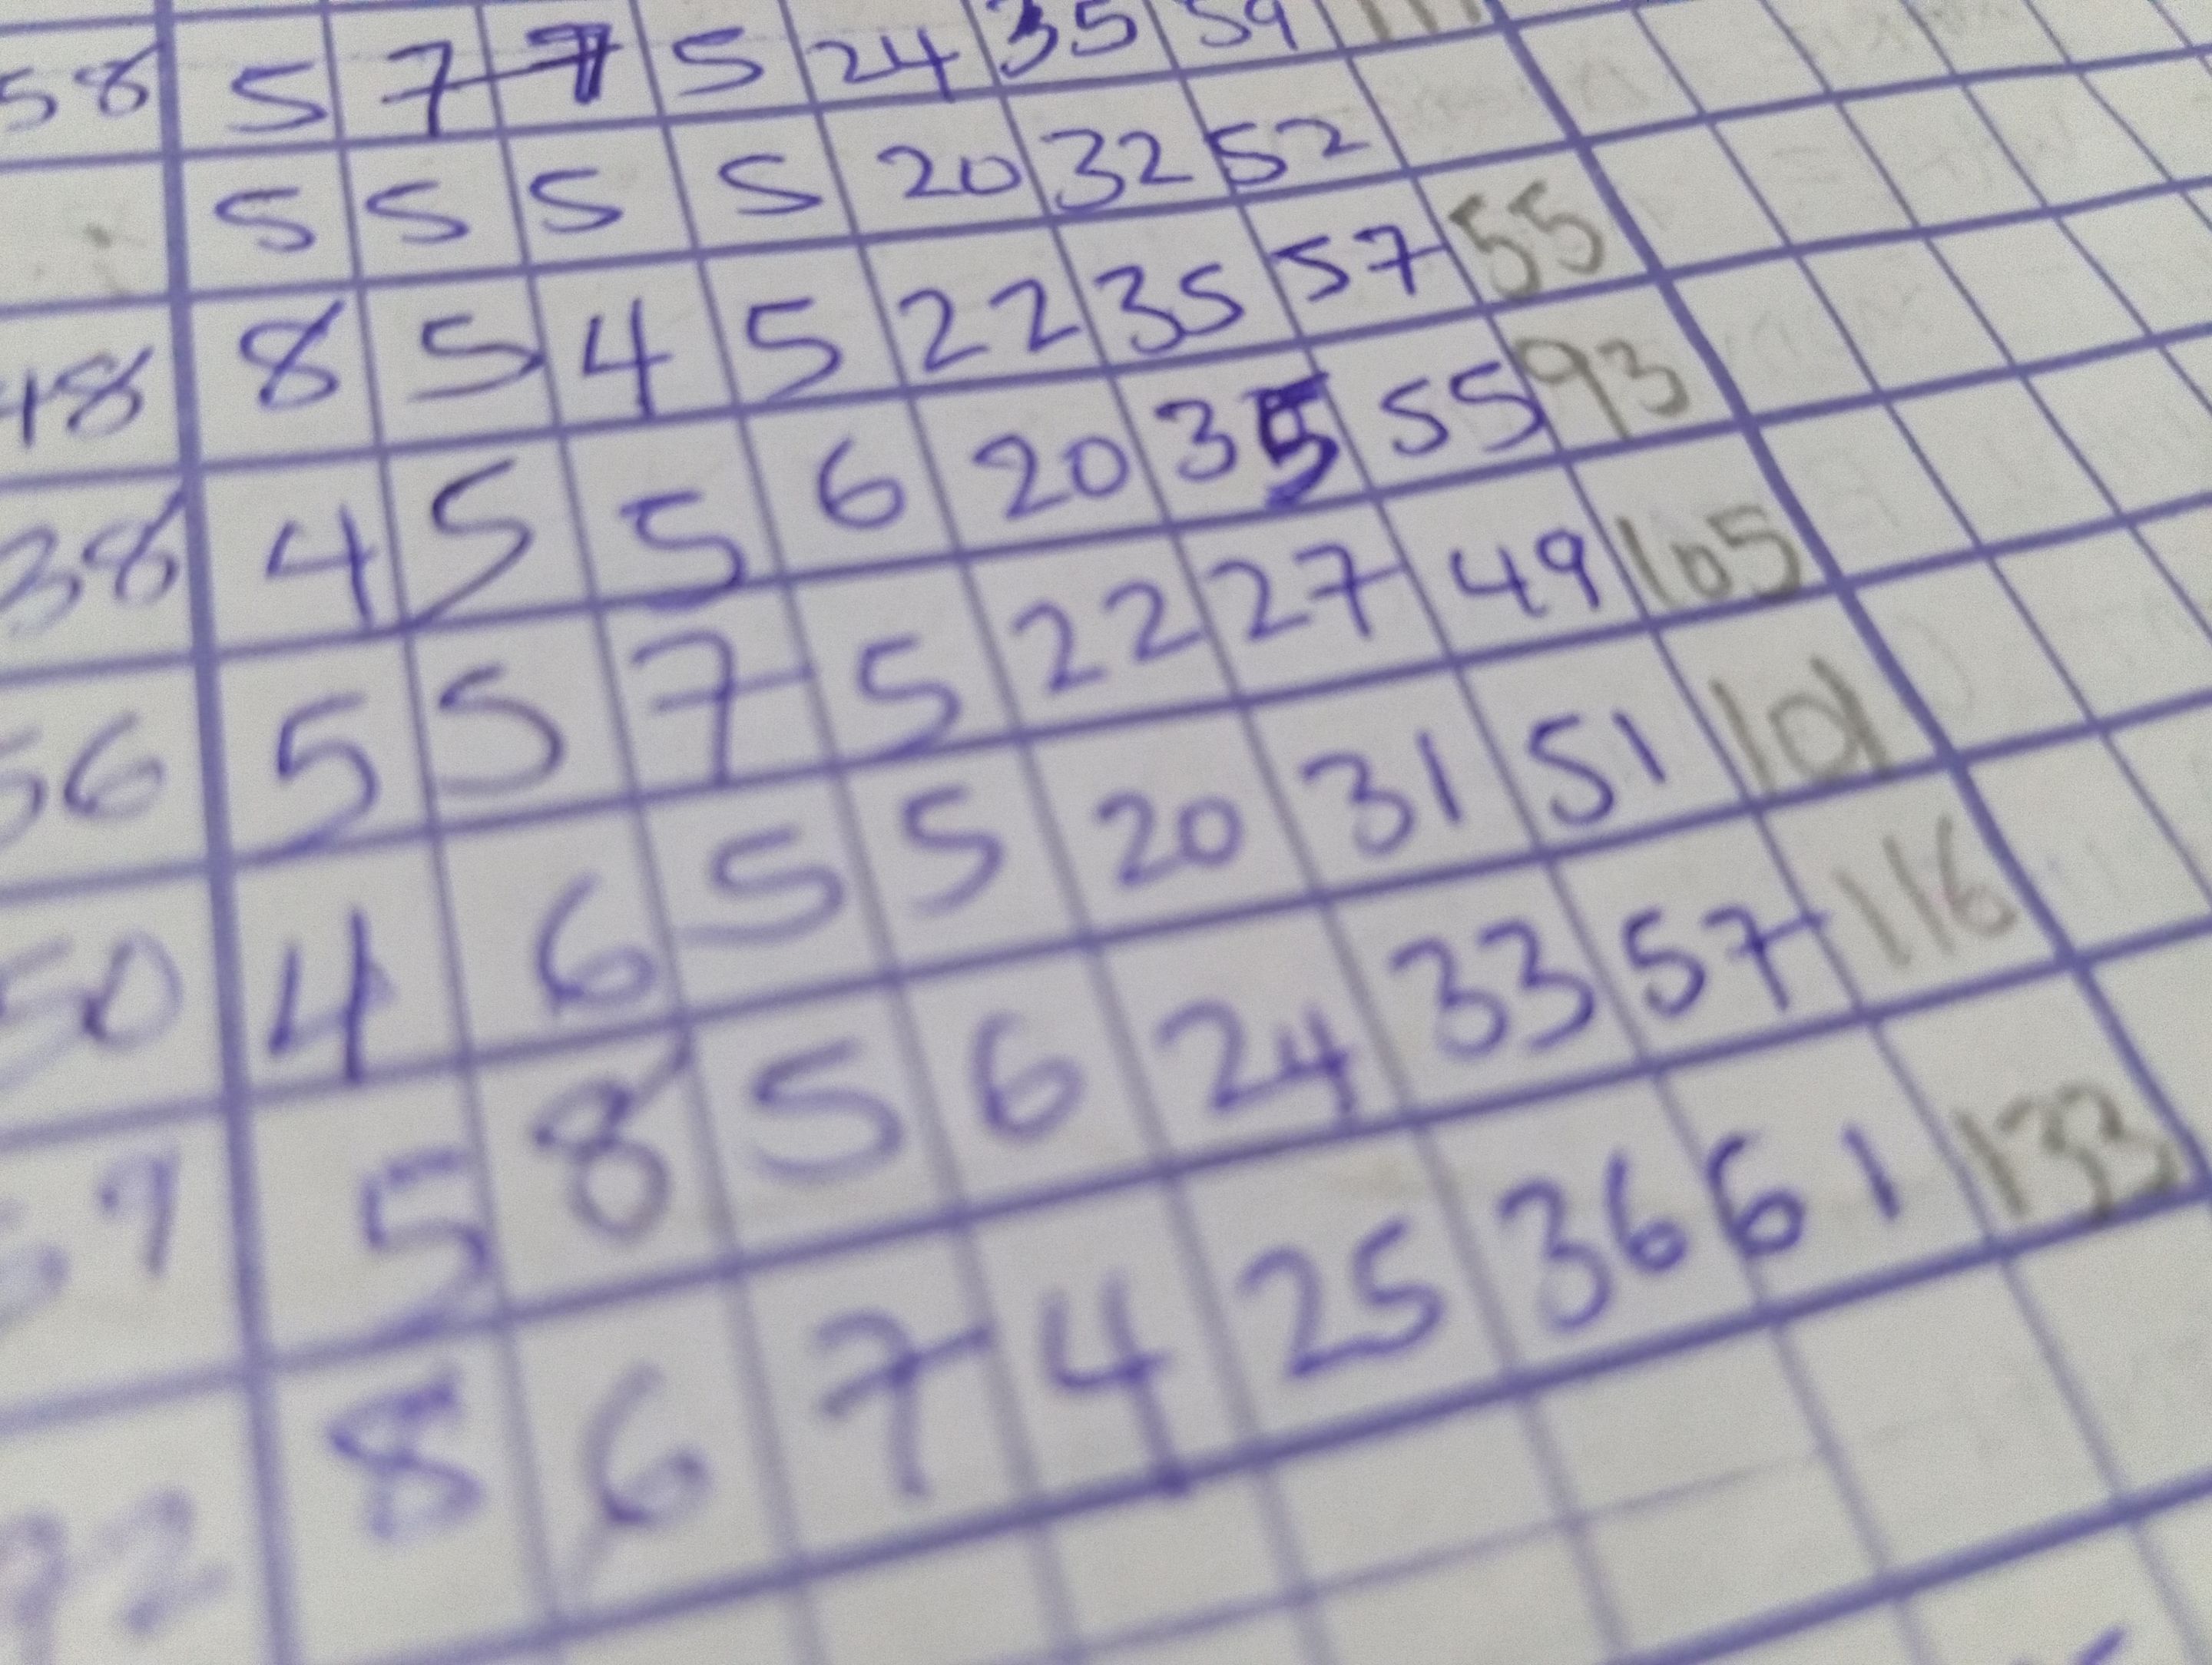 58 5 7 7 5 24 35 59
5 5 5 5 20 32 52
48 8 5 4 5 22 35 57 55
38 4 5 5 6 20 35 55 93
56 5 5 7 5 22 27 49 105
50 4 6 5 5 20 31 51 101
5 8 5 6 24 33 57 116
8 6 7 4 25 36 61 133